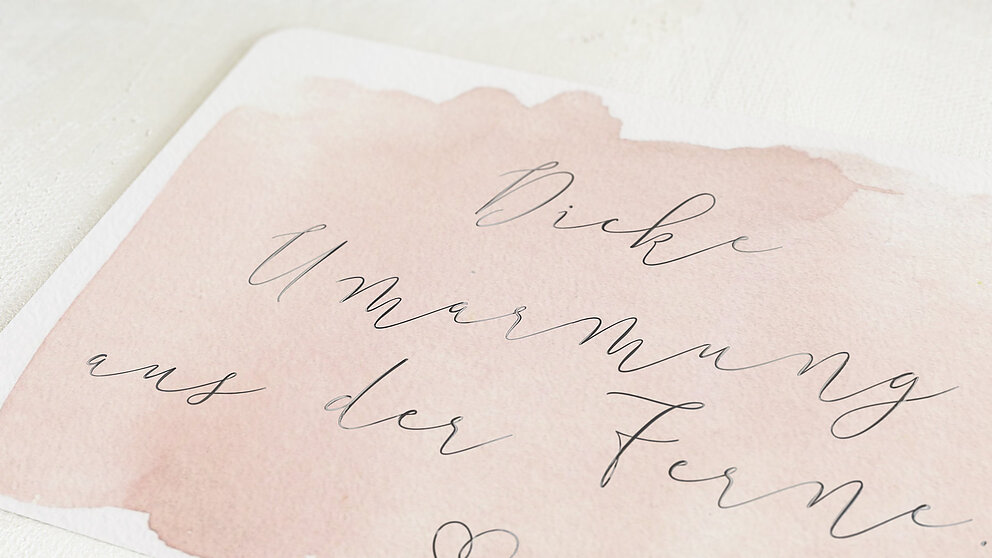 Dicke
Umarmung
aus der Ferne.